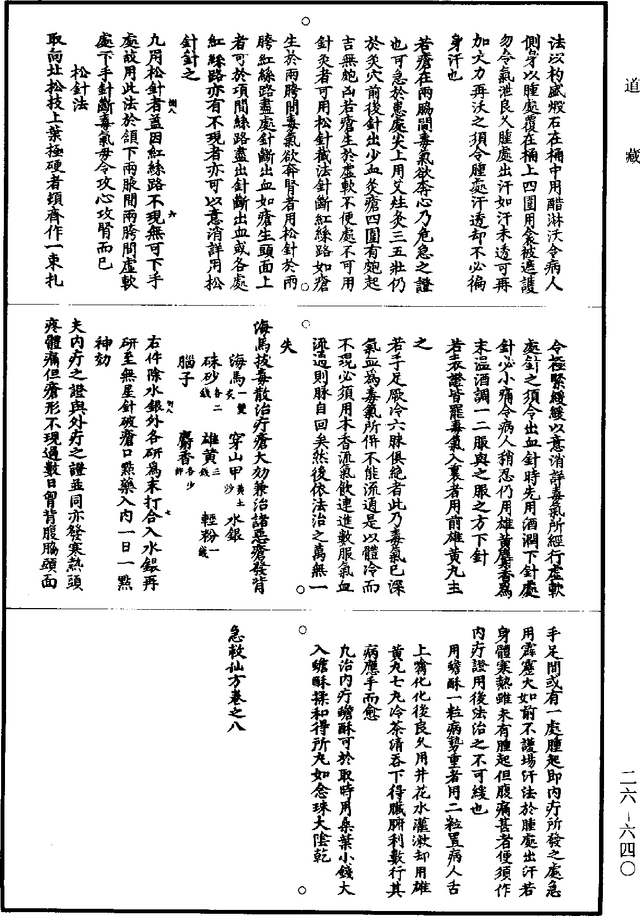 道藏
法以杓盛煅石在桶中用醋淋沃令病人
側身以腫處覆在桶上四圍用衾被遮護
勿令氣泄良久腫處出汗如汗未透可再
加大力再沃之須令腫處汗透却不必徧
身汗也
若瘡在兩脇間毒氣欲奔心乃危急之證
也可急於患處尖上用艾灶灸三五壯仍
於灸穴前後針出少血灸瘡四圍有皰起
吉無皰凶若瘡生於虛軟不便處不可用
針灸者可用松針截法針斷紅絲路如瘡
生於兩胯間毒氣欲奔腎者用松針於兩
胯紅絲路盡處針斷出血如瘡生頭面上
者可於項間絲路盡出針斷出血或各處
紅絲路亦有不現者亦可以意消詳用松
針針之
凡用松針者蓋因紅絲路不現無可下手
處故用此法於頷下兩腋間兩胯間虛軟
處下手針斷毒氣毋令攻心攻腎而已
松針法
取向北松枝上葉極硬者頭齊作一束扎
令極緊緩緩以意消詳毒氣所經行虛軟
處針之須令出血針時先用酒潤下針處
針必小痛令病人稍忍仍用雄黃麝香為
末溫酒調一二服與之服之方下針
若表證皆罷毒氣入裏者用前雄黃丸主
之
若手足厥冷六脉俱絕者此乃毒氣已深
氣血為毒氣所併不能流通是以體冷而
不現必須用木香流氣飲連進數服氣血
流通則脉自回矣然後依法治之萬無一
失
海馬拔毒散治疔瘡大効兼治諸惡瘡發背
海馬炙一雙 穿山甲黃土炒 水銀
硃砂各二錢 雄黃三錢 輕粉一錢
腦子 麝香各少許
右件除水銀外各研為末打合入水銀再
研至無星針破瘡口點藥入內一日一點
神効
夫內疔之證與外疔之證並同亦發寒熱頭
疼體痛但瘡形不現過數日曾背腹脇頭面
手足間或有一處腫起即內疔所發之處急
用霹靂火如前不護場汗法於腫處出汗若
身體寒熱雖未有腫起但腹痛甚者便須作
內疔證用後法治之不可緩也
用蟾酥一粒病勢重者用二粒置病人舌
上噙化化後良久用井花水灌漱却用雄
黃丸七丸冷茶清吞下得臟腑利數行其
病應手而愈
凡治內疔蟾酥可於取時用桑葉小錢大
入蟾酥揉和得所丸如念珠大陰乾
急救仙方卷之八
二六-六四〇